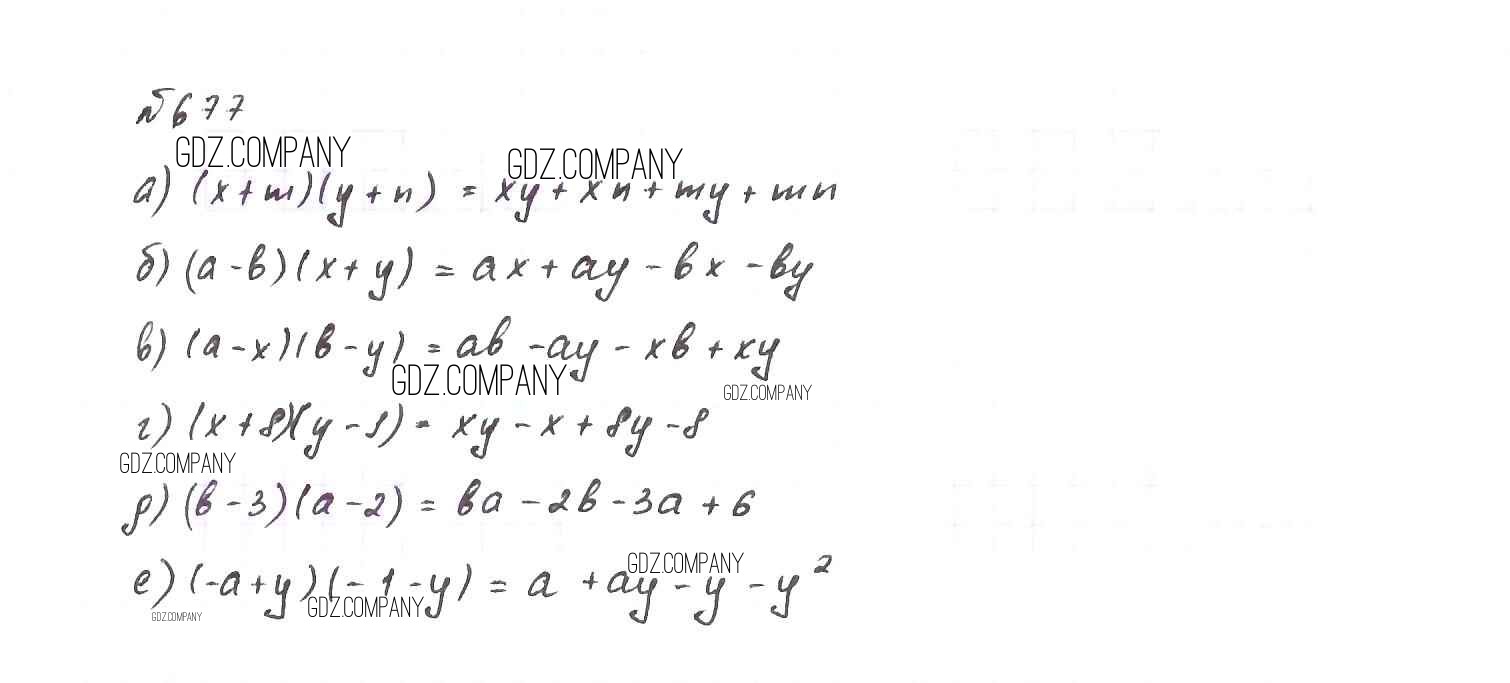 №677
GDZ.COMPANY
GDZ.COMPANY
а) (x+m)(y+n) = xy+xn+my+mn
б) (a-b)(x+y) = ax+ay-bx-by
в) (a-x)(b-y) = ab-ay-xb+xy
GDZ.COMPANY
GDZ.COMPANY
г) (x+8)(y-1) = xy-x+8y-8
GDZ.COMPANY
д) (b-3)(a-2) = ba-2b-3a+6
GDZ.COMPANY
е) (-a+y)(-1-y) = a+ay-y-y²
GDZ.COMPANY
GDZ.COMPANY